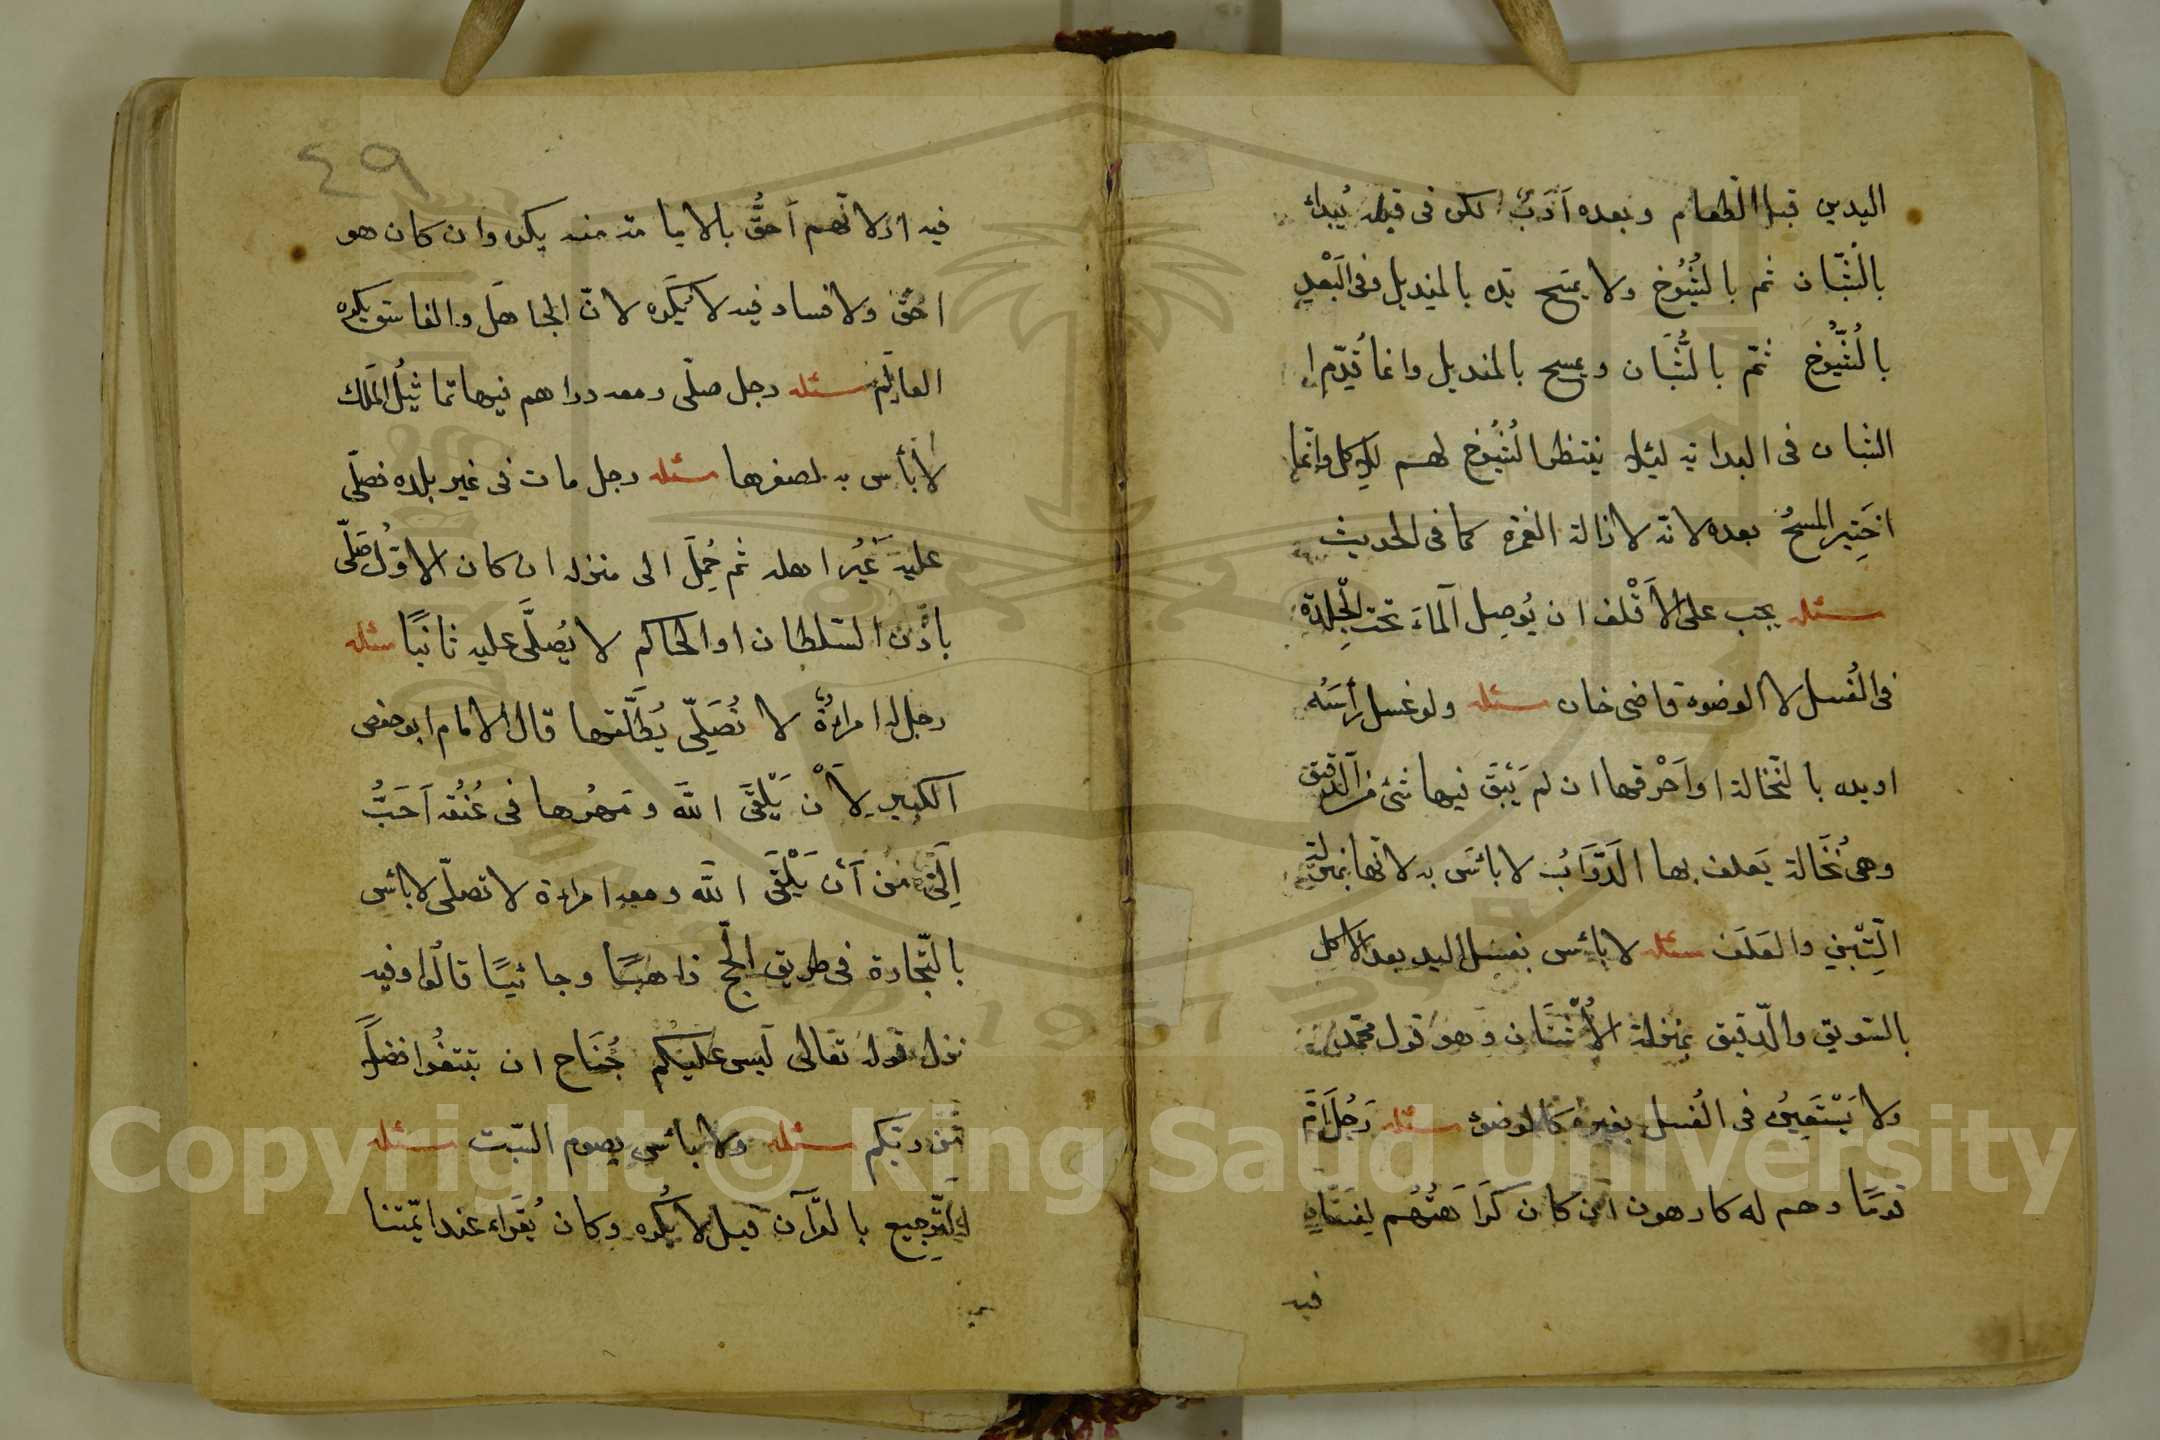 اليدين قبل الطعام وبعده اَدَبٌ لكن فى قبله يُبداُ
بالشّبّان ثم بالشُّيُوخ ولا يمسح يَده بالمنديل وفى البَعْدِ
بالشُّيُوخ ثمّ بالشُّبَّان ويمسح بالمنديل وانما قُدّم
الشبان فى البداية ليئلا ينتظر الشُيُوخ لهم للاكل وانّما
اخْتِير المسحُ بعده لانّه لازالة الغمرة كما فى الحديث
مسئله يجب على الاَقْلف ان يُوصِل اَلماءَ تحت الجِلدة
فى الغُسل لا الوضوء قاضى خان مسئله ولو غسل رأْسَه
او يده بالنّخالة او اَحْرقها ان لم يَبْقَ فيها شئ من الدّقيق
وهى نُخَالة يَعلف بها الدّوَابُ لا بائسَ به لانّها بمنزلة
التِّبْنِ والعَلَف مسئله لا بائس بغسل اليد بعد الاكل
بالسّويق والدّقيق بمنزلة الاُشْنَان وهو قول محمّد
ولا يَسْتَعِينُ فى الغُسل بغيره كالوضوء مسئله رَجُل اَمَّ
قومًا وهم له كارهون اَنْ كان كَرَاهَتُهُم لِفَسَادٍ
فيه
٤٩
فيه او لانّهم اَحَقُّ بالامامة منه يكره وان كان هو
احقّ ولا فساد فيه لا يُكره لانّ الجاهَل والفاسق يكره
العالِم مسئله رجل صلّى ومعه دراهم فيها تماثيلُ المَلك
لا بأس به لصغرها مسئله رجل مات فى غير بلده فصلّى
عليه غَيْرُ اهله ثم حُمِلَ الى منزله ان كان الاوّلُ صَلّى
باذْن السّلطان او الحاكم لا يُصلَّى عليه ثانيًا مسئله
رجل له امراءةٌ لا تُصَلِّى يُطَلّقها قال الامام ابو حفص
الكبير لِاَنْ يَلْقَى اللّهَ ومَهرُها فى عُنُقه اَحَبُّ
اِلَىَّ مِن اَنْ يَلْقَى اللّه ومعه امراءة لا تصلّى لا بائس
بالتّجارة فى طريق الحجّ ذاهبًا وجائيًا قالُوا وفيه
نزل قوله تعالى لَيس عليكم جُنَاح ان تبتغُوا فضلًا
مّن ربّكم مسئله ولا بائس بصوم السّبت مسئله
اَلتّرجيع بالقرآن قيل لا يُكره وكان يُقرَاء عند ائمّتنا
Copyright © King Saud University
1957